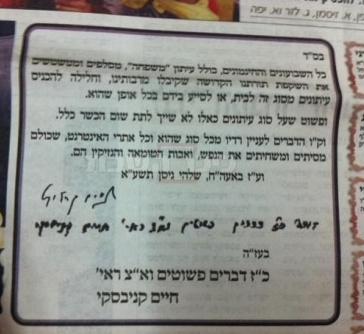 א. זיסמן, ב. לזר וא. יפה
בס"ד
כל השבועונים והחינמונים, כולל עיתון "משפחה", מסלפים ומטשטשים
את השקפת תורתנו הקדושה שקיבלנו מרבותינו, וחלילה להכניס
עיתונים מסוג זה לבית, או לסייע בידם בכל אופן שהוא.
ופשוט שעל סוג עיתונים כאלו לא שייך לתת שום הכשר כלל.
וק"ו הדברים לעניין רדיו מכל סוג שהוא וכל אתרי האינטרנט, שכולם
מסיתים ומשחיתים את הנפש, ואבות הטומאה והנזיקין הם.
וע"ז באעה"ח, שלהי ניסן תשע"א
בעז"ה
כ"ז דברים פשוטים וא"צ ראי'
חיים קניבסקי